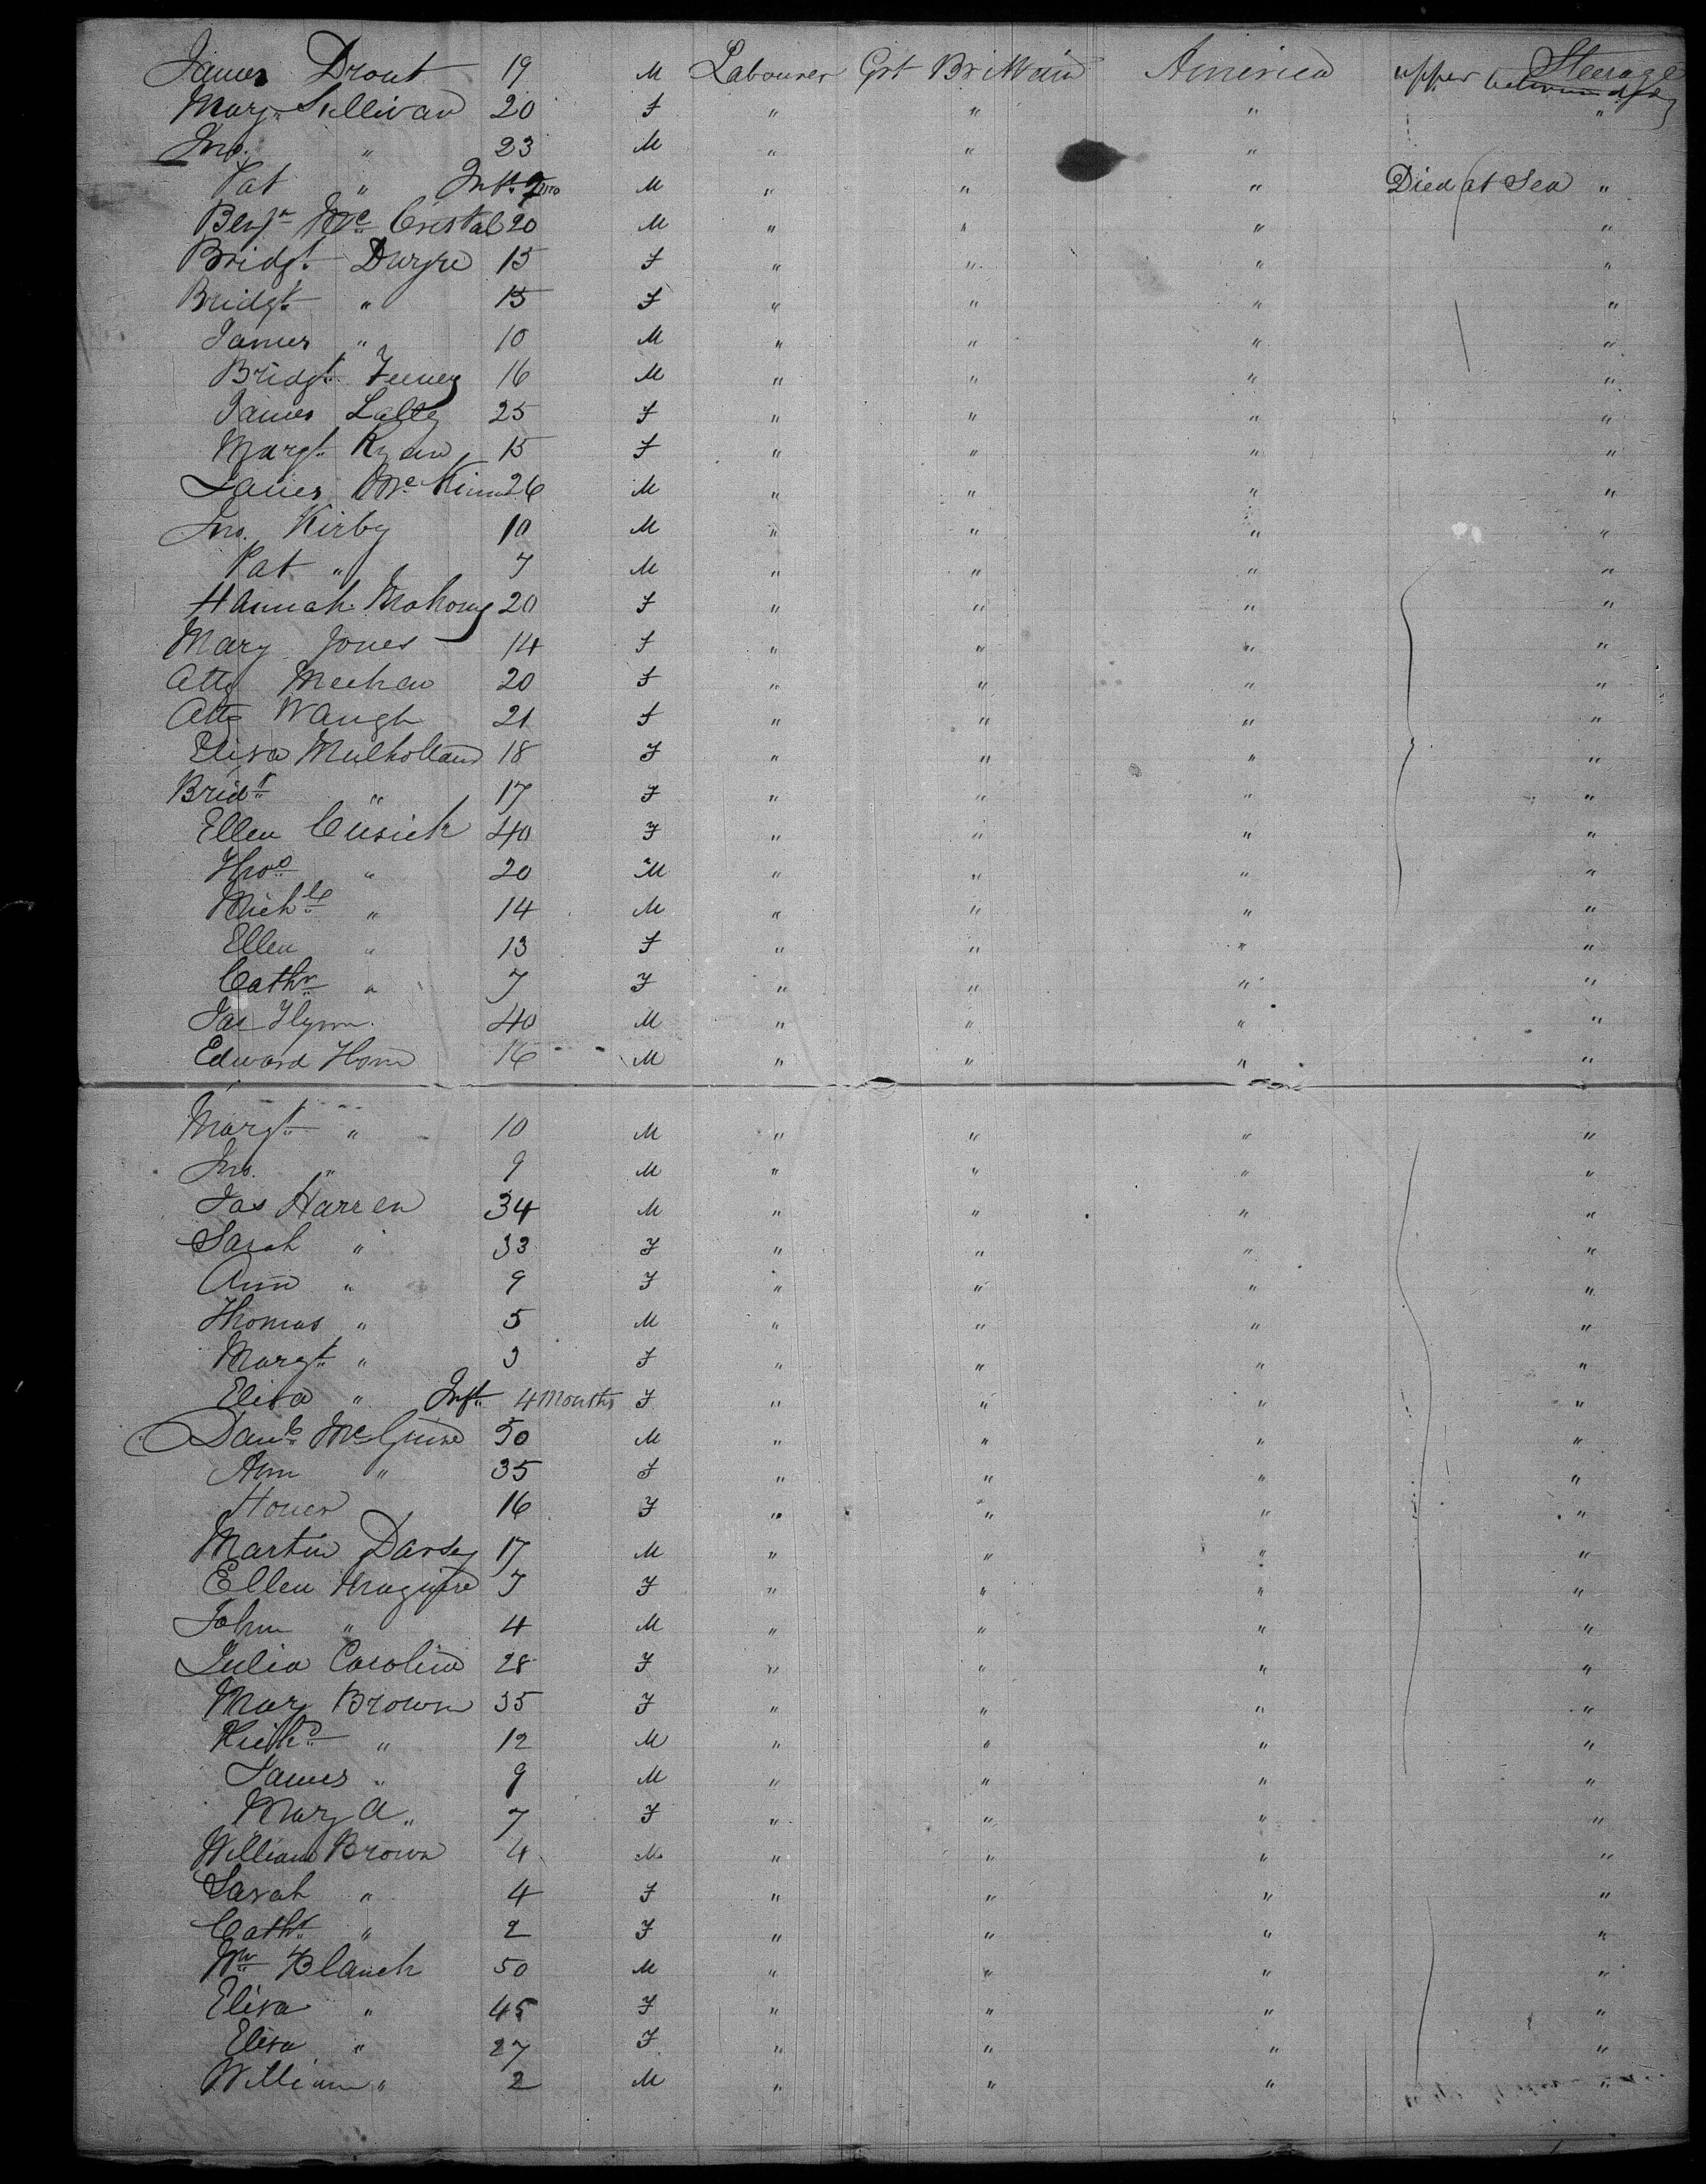 James Drout 19 M Labourer Grt Brittain America upper Steerage
Mary Sullivan 20 f " " " "
Jno. " 23 M " " "
Pat " Inft. M " " " Died at Sea "
Benjn Mc Cristal 20 M " " " "
Bridgt. Dwyre 15 f " " " "
Bridgt. " 15 f " " " "
James " 10 M " " " "
Bridgt. Feeney 16 M " " " "
James Lally 25 f " " " "
Margt. Ryan 15 f " " " "
James Mc Kinn 26 M " " " "
Jno. Kirby 10 M " " " "
Pat " 7 M " " " "
Hannah Mahony 20 f " " " "
Mary Jones 14 f " " " "
Atty Meehan 20 f " " " "
Atty Waugh 21 f " " " "
Eliza Mulholland 18 F " " " "
Bridt " 17 F " " " "
Ellen Cusick 40 F " " " "
Thos " 20 M " " " "
Michl " 14 M " " " "
Ellen " 13 f " " " "
Cathr " 7 F " " " "
Jas Flynn. 40 M " " " "
Edward Horn 16 M " " " "
Margt. " 10 M " " " "
Jno. " 9 M " " " "
Jas Harren 34 M " " " "
Sarah " 33 F " " " "
Ann " 9 F " " " "
Thomas " 5 M " " " "
Margt. " 3 f " " " "
Eliza " Inft. 4 Months F " " " "
Danl. McGuire 50 M " " " "
Ann " 35 f " " " "
Honer 16 F " " " "
Martin Darsey 17 M " " " "
Ellen Maguire 7 F " " " "
John " 4 M " " " "
Julia Carolina 28 F " " " "
Mary Brown 35 F " " " "
Richd " 12 M " " " "
James " 9 M " " " "
Mary A " 7 F " " " "
William Brown 4 M " " " "
Sarah " 4 F " " " "
Catht. " 2 F " " " "
Wm Blanch 50 M " " " "
Eliza " 45 F " " " "
Eliza " 27 F " " " "
William " 2 M " " " "